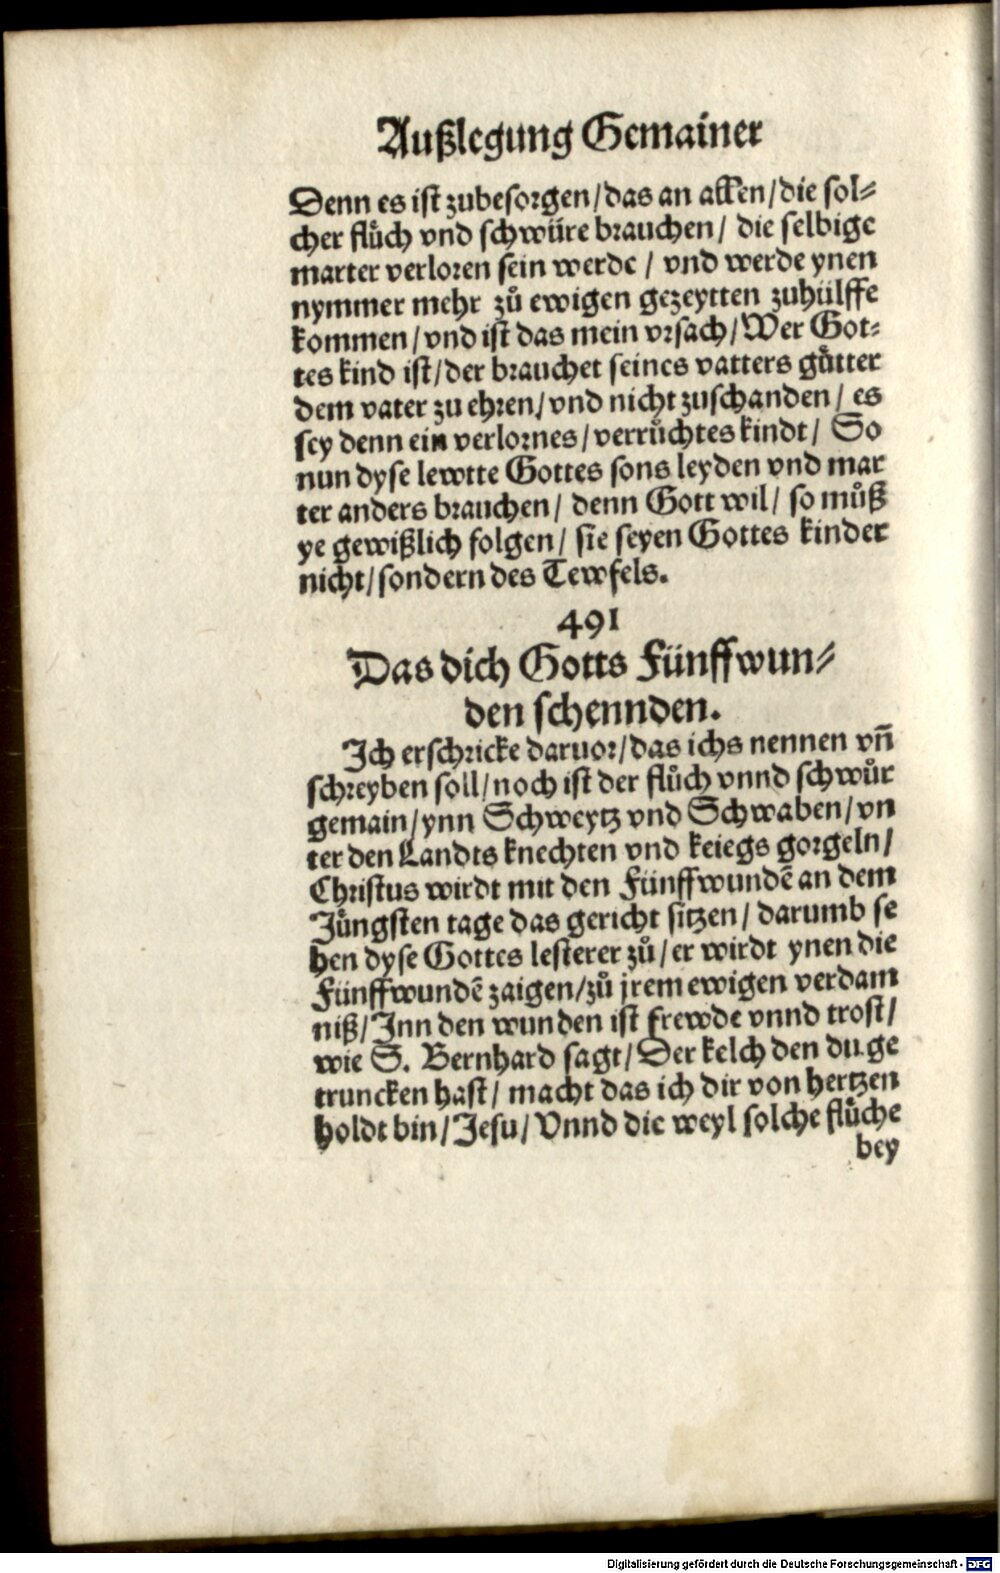 Außlegung Gemainer
Denn es ist zubesorgen/das an allen/die sol⸗
cher flůch vnd schwüre brauchen/ die selbige
marter verloren sein werde / vnd werde ynen
nymmer mehr zů ewigen gezeytten zuhülffe
kommen/vnd ist das mein vrsach/Wer Got⸗
tes kind ist/der brauchet seines vatters gůtter
dem vater zu ehren/vnd nicht zuschanden/ es
sey denn ein verlornes/verrůchtes kindt/ So
nun dyse lewtte Gottes sons leyden vnd mar
ter anders brauchen/ denn Gott wil/ so můß
ye gewißlich folgen/ sie seyen Gottes kinder
nicht/sondern des Tewfels.
491
Das dich Gotts Fünffwun⸗
den schennden.
Ich erschricke daruor/das ichs nennen vn̄
schreyben soll/noch ist der flůch vnnd schwůr
gemain/ynn Schweytz vnd Schwaben/vn
ter den Landts knechten vnd keiegs gorgeln/
Christus wirdt mit den Fünffwundē an dem
Jůngsten tage das gericht sitzen/ darumb se
hen dyse Gottes lesterer zů/er wirdt ynen die
Fünffwundē zaigen/zů jrem ewigen verdam
niß/Inn den wunden ist frewde vnnd trost/
wie S. Bernhard sagt/Der kelch den du ge
truncken hast/ macht das ich dir von hertzen
holdt bin/Jesu/Vnnd die weyl solche flůche
bey
Digitalisierung gefördert durch die Deutsche Forschungsgemeinschaft - DFG